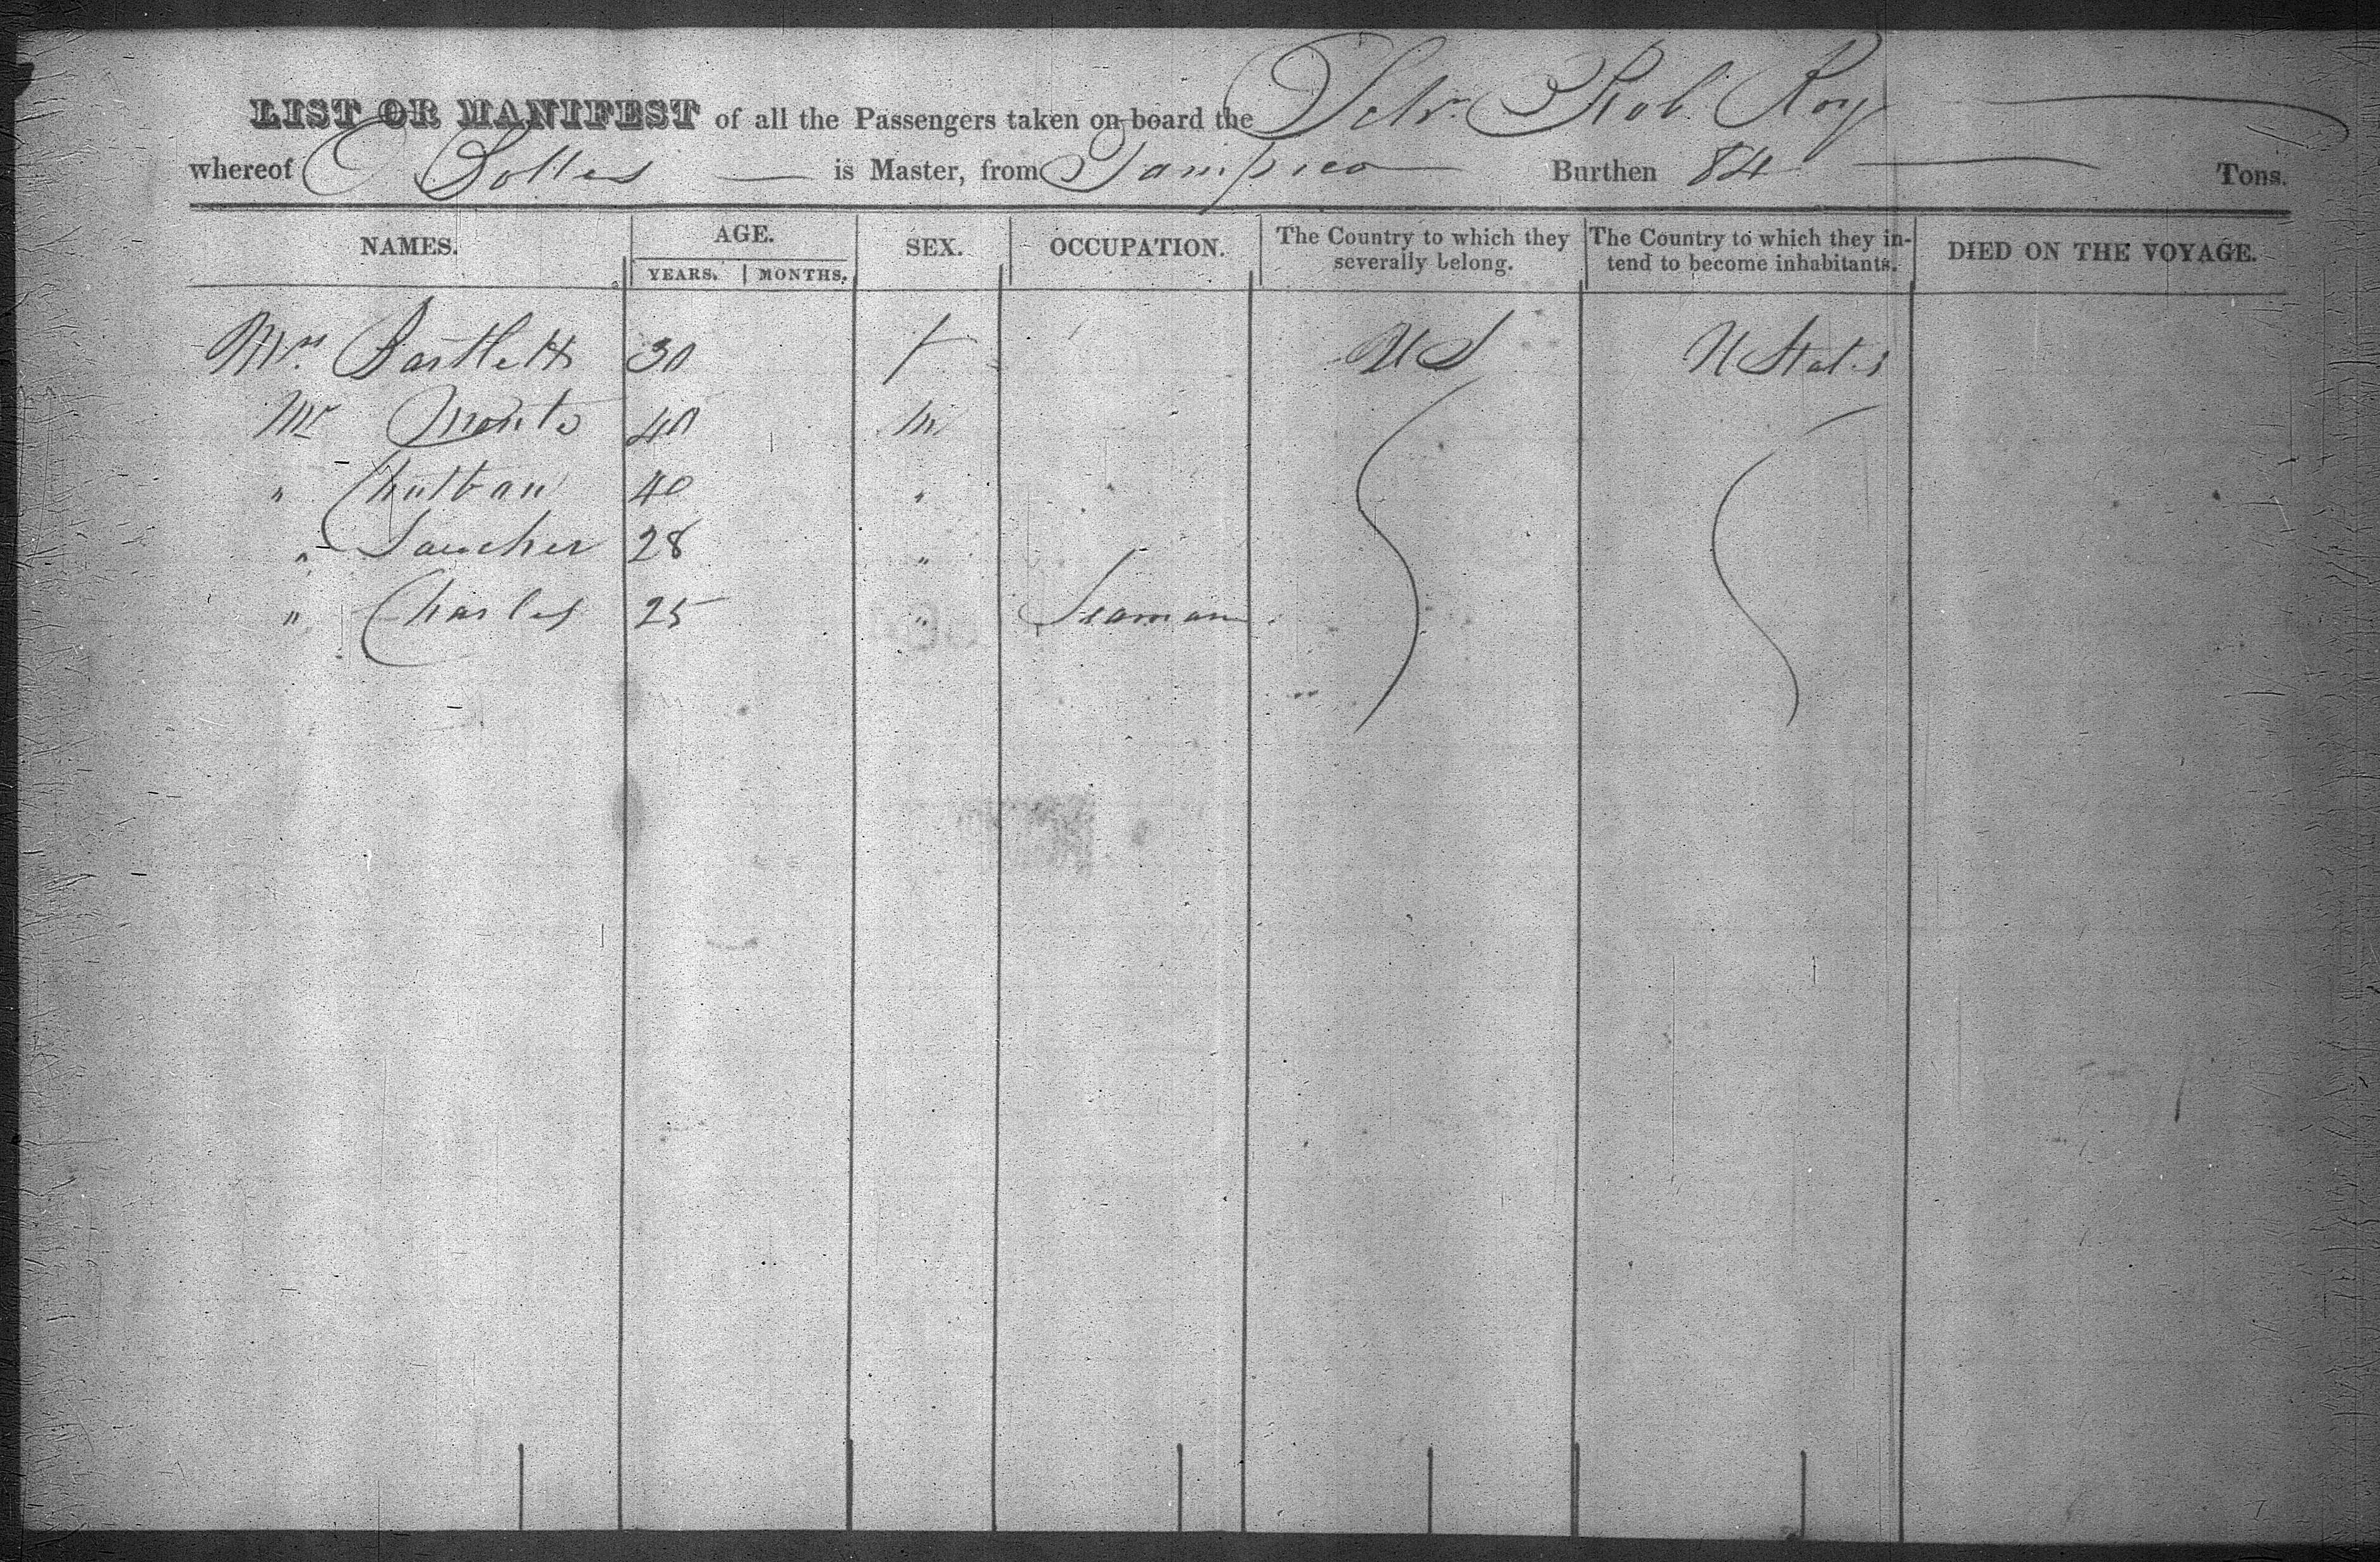 LIST OR MANIFEST of all the Passengers taken on board the Schr. Rob Roy
whereof E Bolles is Master, from Tampico Burthen 84 Tons.
NAMES. AGE. SEX. OCCUPATION. The Country to which they severally belong. The Country to which they in-tend to become inhabitants. DIED ON THE VOYAGE.
YEARS. MONTHS.
Mrs. Bartlett 30 f U S U States
Mr 40 m
" 40 "
" 28 "
" Charles 25 " Seaman